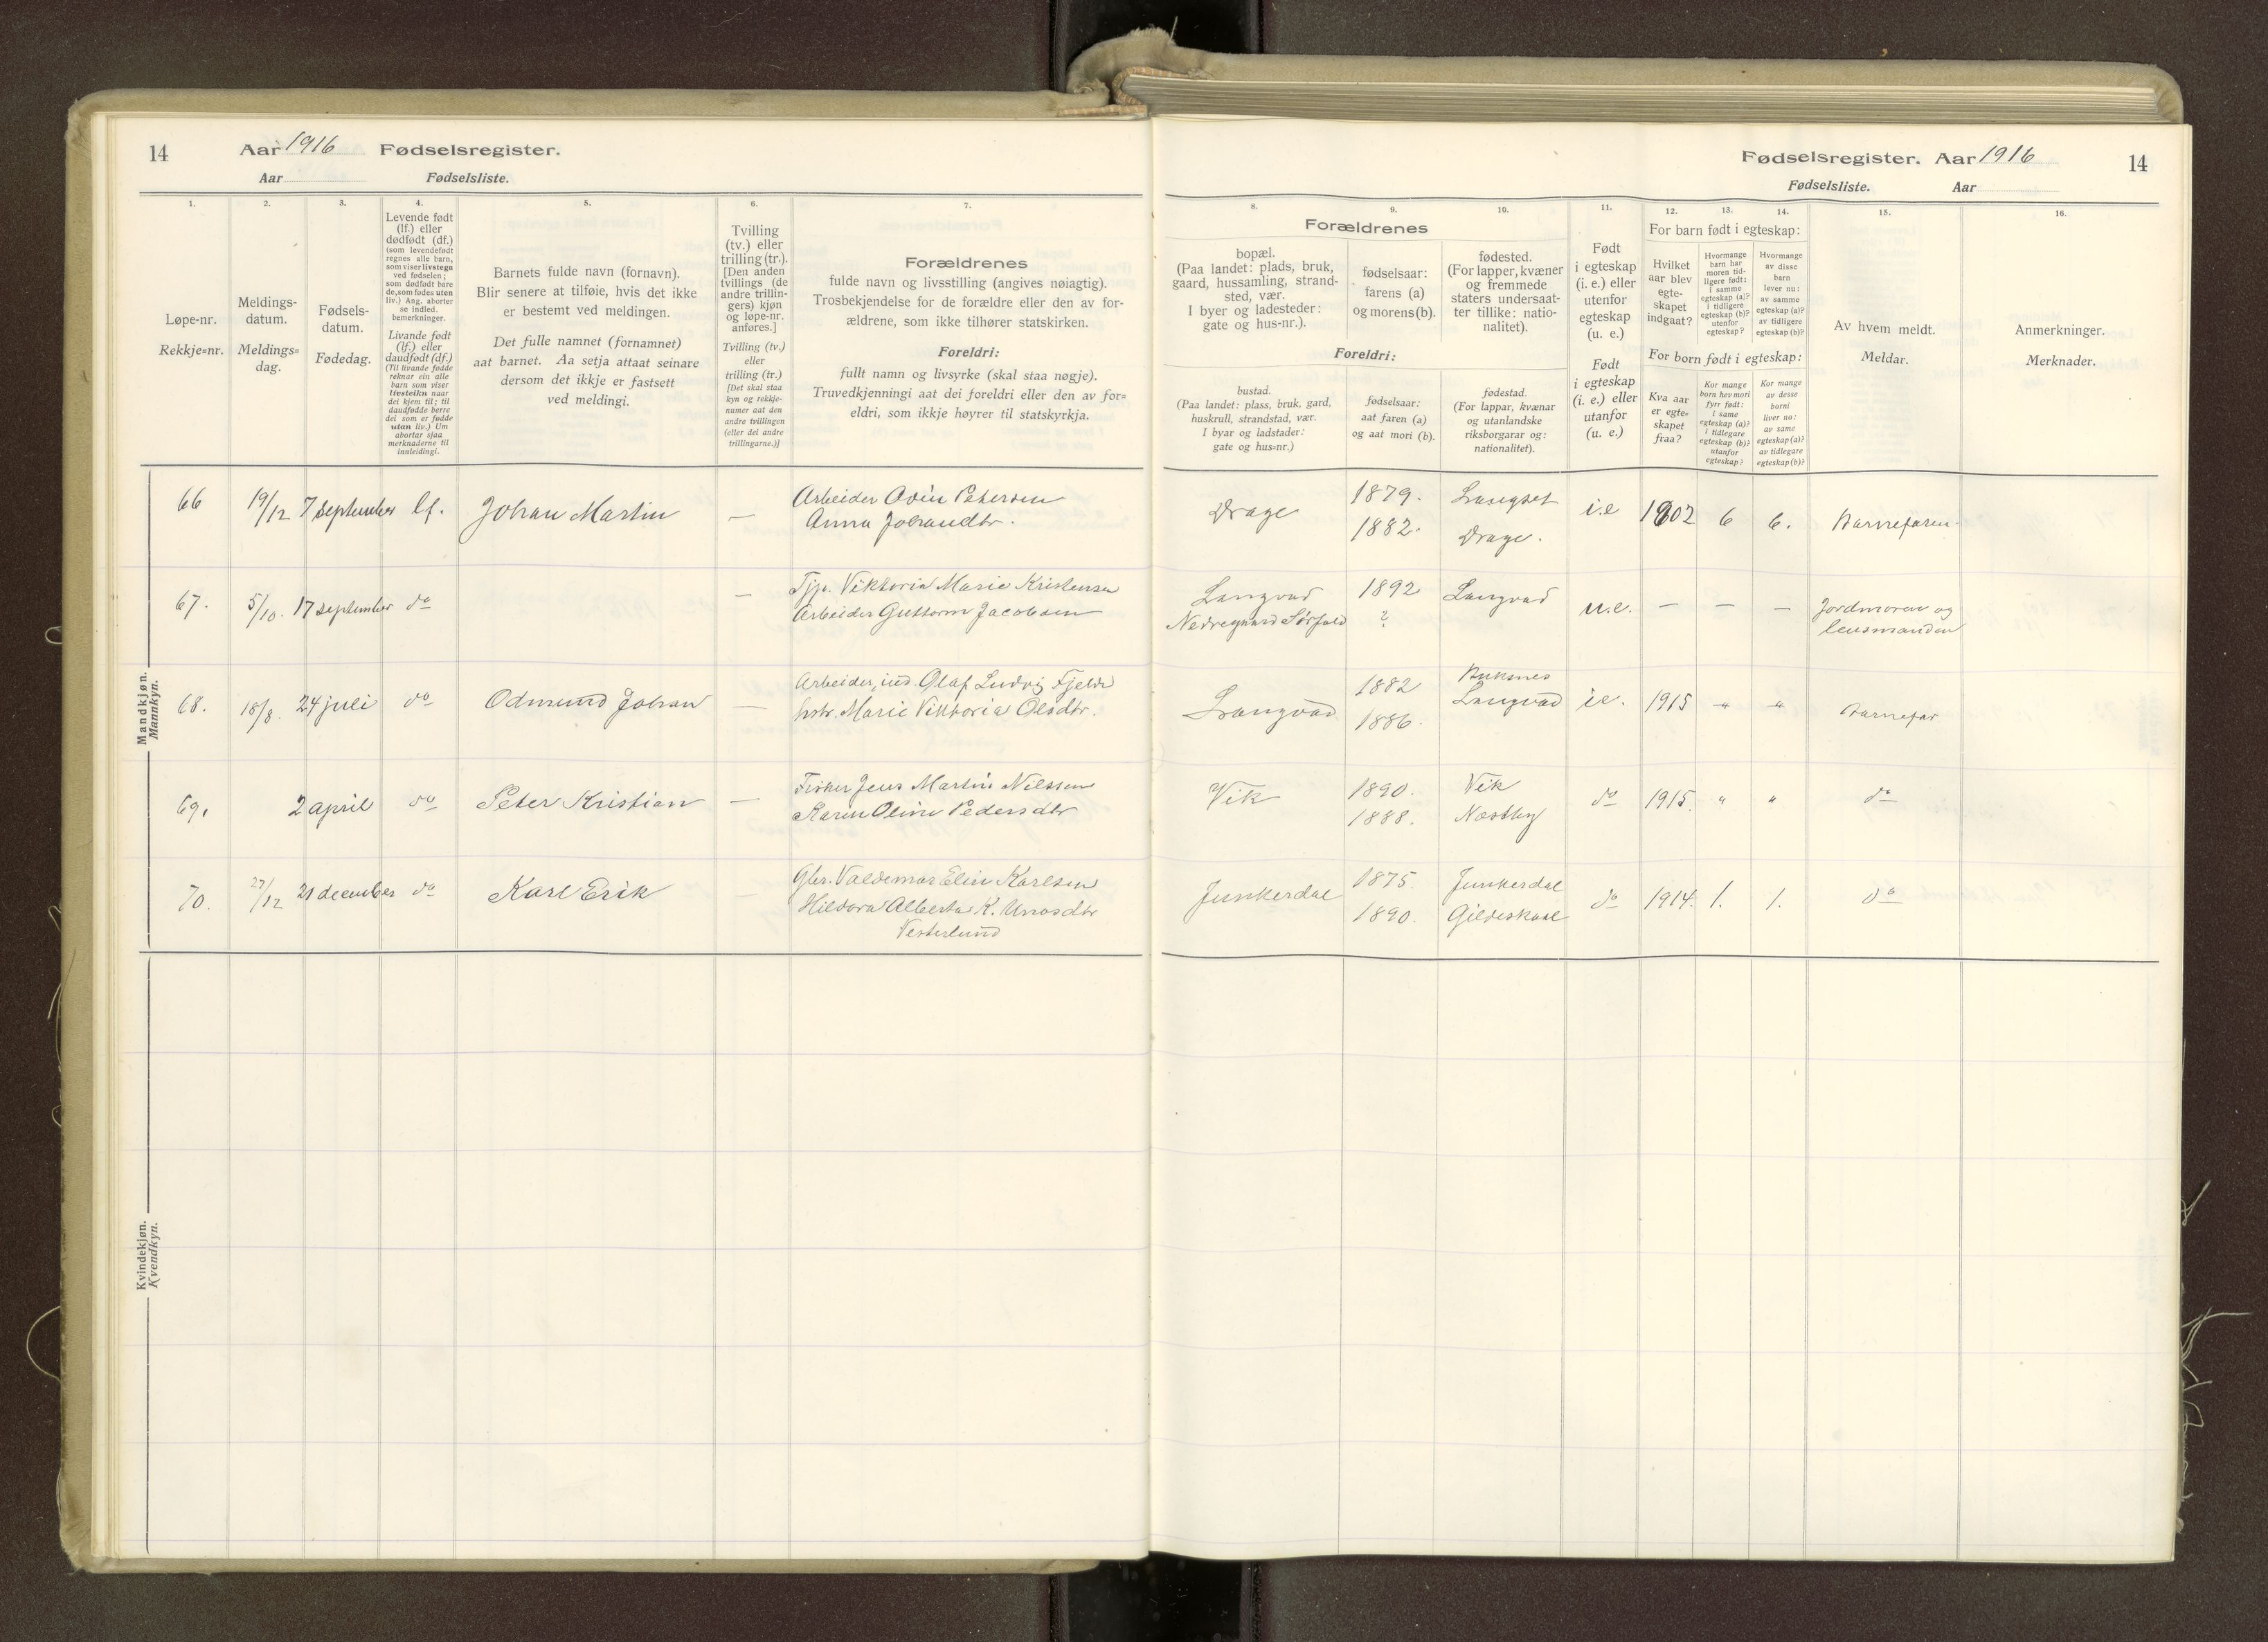 14
Aar 1916 Fødselsregister.
Aar Fødselsliste.
Fødselsregister. Aar 1916
14
Fødselsliste. Aar
1.
2.
3.
4.
5.
6.
7.
8.
9.
10.
11.
12.
13.
14.
15.
16.
Løpe-nr.
Rekkje=nr.
Meldings-
datum.
Meldings=
dag.
Fødsels-
datum.
Fødedag.
Levende født
(lf.) eller
dødfødt (df.)
(som levendefødt
regnes alle barn,
som viser livstegn
ved fødselen;
som dødfødt bare
de, som fødes uten
liv.) Ang. aborter
se indled.
bemerkninger.
Livande født
(lf.) eller
daudfødt (df.)
(Til livande fødde
reknar ein alle
barn som viser
livsteikn naar
dei kjem til; til
daudfødde berre
dei som er fødde
utan liv.) Um
abortar sjaa
merknaderne til
innleidingi.
Barnets fulde navn (fornavn).
Blir senere at tilføie, hvis det ikke
er bestemt ved meldingen.
Det fulle namnet (fornamnet)
aat barnet. Aa setja attaat seinare
dersom det ikkje er fastsett
ved meldingi.
Tvilling
(tv.) eller
trilling (tr.).
[Den anden
tvillings (de
andre trillin-
gers) kjøn
og løpe-nr.
anføres.]
Tvilling (tv.)
eller
trilling (tr.)
[Det skal staa
kyn og rekkje-
numer aat den
andre tvillingen
(eller dei andre
trillingarne.)]
Forældrenes
fulde navn og livsstilling (angives nøiagtig).
Trosbekjendelse for de forældre eller den av for-
ældrene, som ikke tilhører statskirken.
Foreldri:
fullt namn og livsyrke (skal staa nøgje).
Truvedkjenningi aat dei foreldri eller den av for=
eldri, som ikkje høyrer til statskyrkja.
Forældrenes
bopæl.
(Paa landet: plads, bruk,
gaard, hussamling, strand-
sted, vær.
I byer og ladesteder:
gate og hus-nr.).
fødselsaar:
farens (a)
og morens (b).
fødested.
(For lapper, kvæner
og fremmede
staters undersaat-
ter tillike: natio-
nalitet).
Foreldri:
bustad.
(Paa landet: plass, bruk, gard,
huskrull, strandstad, vær.
I byar og ladstader:
gate og hus=nr.)
fødselsaar:
aat faren (a)
og aat mori (b).
fødestad.
(For lappar, kvænar
og utanlandske
riksborgarar og:
nationalitet).
Født
i egteskap
(i. e.) eller
utenfor
egteskap
(u. e.)
Født
i egteskap
(i. e.) eller
utanfor
(u. e.)
For barn født i egteskap:
Hvilket
aar blev
egte-
skapet
indgaat?
Hvormange
barn har
moren tid-
ligere født:
i samme
egteskap (a)?
i tidligere
egteskap (b)?
utenfor
egteskap?
Hvormange
av disse
barn
lever nu:
av samme
egteskap (a)?
av tidligere
egteskap (b)?
For born født i egteskap:
Kva aar
er egte=
skapet
fraa?
Kor mange
born hev mori
fyrr født:
i same
egteskap (a)?
i tidlegare
egteskap (b)?
utanfor
egteskap?
Kor mange
av desse
borni
liver no:
av same
egteskap (a)?
av tidlegare
egteskap (b)?
Av hvem meldt.
Meldar.
Anmerkninger.
Merknader.
Mandkjøn.
Mannkyn.
66 19/12 7 september lf. Johan Martin — Arbeider Odin Petersen
Anna Johandtr.
Drage 1879. 1882. Langset Drage. i.e 1902 6 6. Barnefaren.
67. 5/10. 17 september do — Tjp. Viktoria Marie Kristensen
Arbeider Guttorm Jacobsen
Langvad Nedregaard Sørfold 1892 ? Langvad u.e. — — — Jordmoren og
lensmanden
68. 18/8. 24 juli do Odmund Johan — Arbeider, ind. Olaf Ludvig Fjeld
hstr. Marie Viktoria Olsdtr.
Langvad 1882 1886. Buksnes Langvad i.e. 1915 " " Barnefar
69. 2 april do Peter Kristian — Fisker Jens Martin Nilssen
Karen Oline Pedersdtr
Vik 1890. 1888. Vik Næstby do 1915. " " do
70. 27/12 21 december do Karl Erik — Gbr. Valdemar Elin Karlsen
Hildora Alberta K. Unosdtr
Vesterlund
Junkerdal 1875. 1890. Junkerdal Gildeskaal do 1914. 1. 1. do
Kvindekjøn.
Kvendkyn.